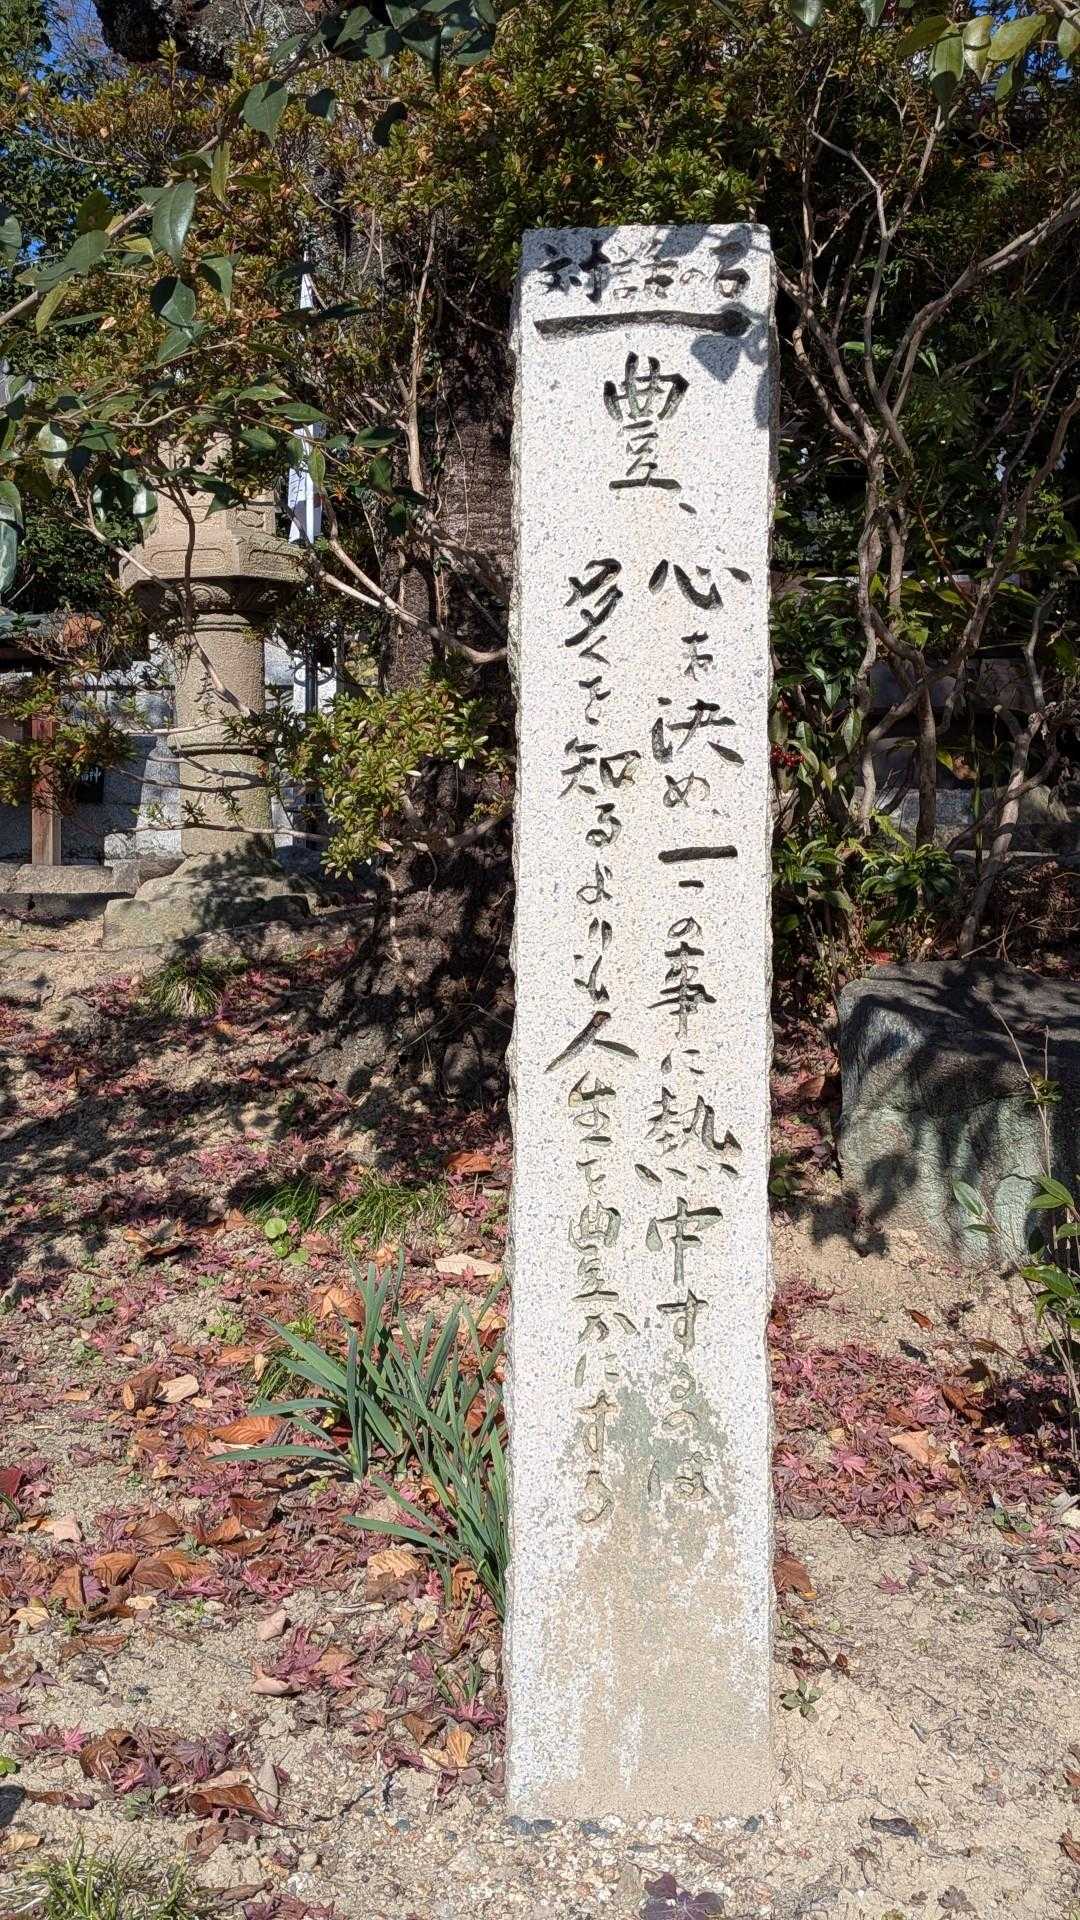 対話の石
豊、
心を決め、一つの事に熱中するのは
多くを知るよりも人生を豊かにする
奉